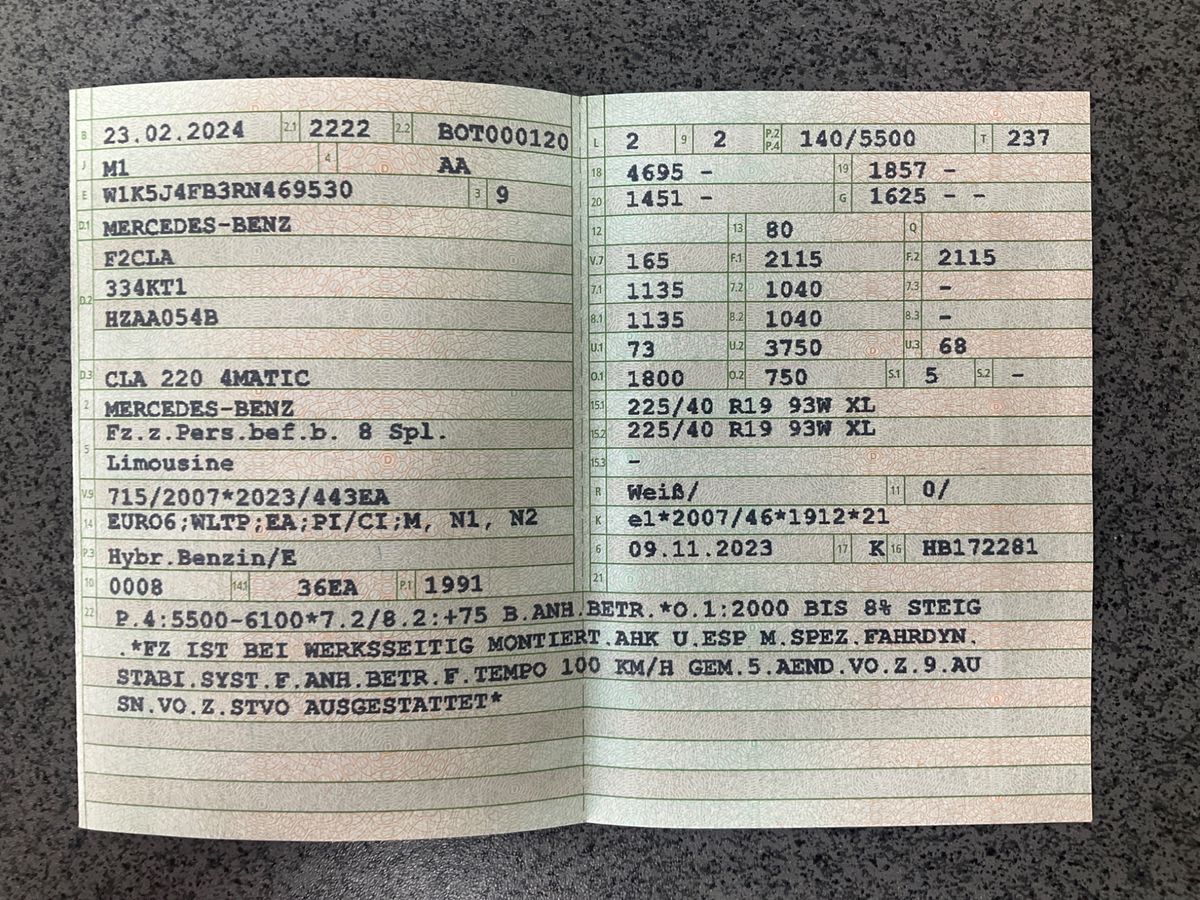 B 23.02.2024 2.1 2222 2.2 BOT000120
J M1 4 AA
E W1K5J4FB3RN469530 3 9
D.1 MERCEDES-BENZ
F2CLA
D.2 334KT1
HZAA054B
D.3 CLA 220 4MATIC
2 MERCEDES-BENZ
Fz.z.Pers.bef.b. 8 Spl.
5 Limousine
V.9 715/2007*2023/443EA
14 EURO6;WLTP;EA;PI/CI;M, N1, N2
P.3 Hybr.Benzin/E
10 0008 14.1 36EA P.1 1991
L 2 9 2 P.2 P.4 140/5500 T 237
18 4695 - 19 1857 -
20 1451 - G 1625 - -
12 13 80 Q
V.7 165 F.1 2115 F.2 2115
7.1 1135 7.2 1040 7.3 -
8.1 1135 8.2 1040 8.3 -
U.1 73 U.2 3750 U.3 68
O.1 1800 O.2 750 S.1 5 S.2 -
15.1 225/40 R19 93W XL
15.2 225/40 R19 93W XL
15.3 -
R Weiß/ 11 0/
K e1*2007/46*1912*21
6 09.11.2023 17 K 16 HB172281
21
22 P.4:5500-6100*7.2/8.2:+75 B.ANH.BETR.*O.1:2000 BIS 8% STEIG
.*FZ IST BEI WERKSSEITIG MONTIERT.AHK U.ESP M.SPEZ.FAHRDYN.
STABI.SYST.F.ANH.BETR.F.TEMPO 100 KM/H GEM.5.AEND.VO.Z.9.AU
SN.VO.Z.STVO AUSGESTATTET*